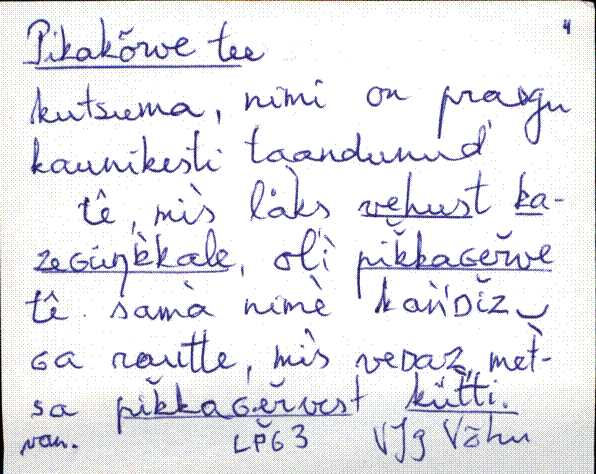 4
Pikakõrve tee
kutsuma, nimi on praegu
kaunikesti taandunud
tê, mìs lä̀ks vehust ka-
, olì pĭkkaɢĕrve
tê. samà nimè kańDĭz
ɢa rautte, mìs veDaz, mèt-
sa pĭkkaɢĕrvest kütti.
van. VJg Võhu